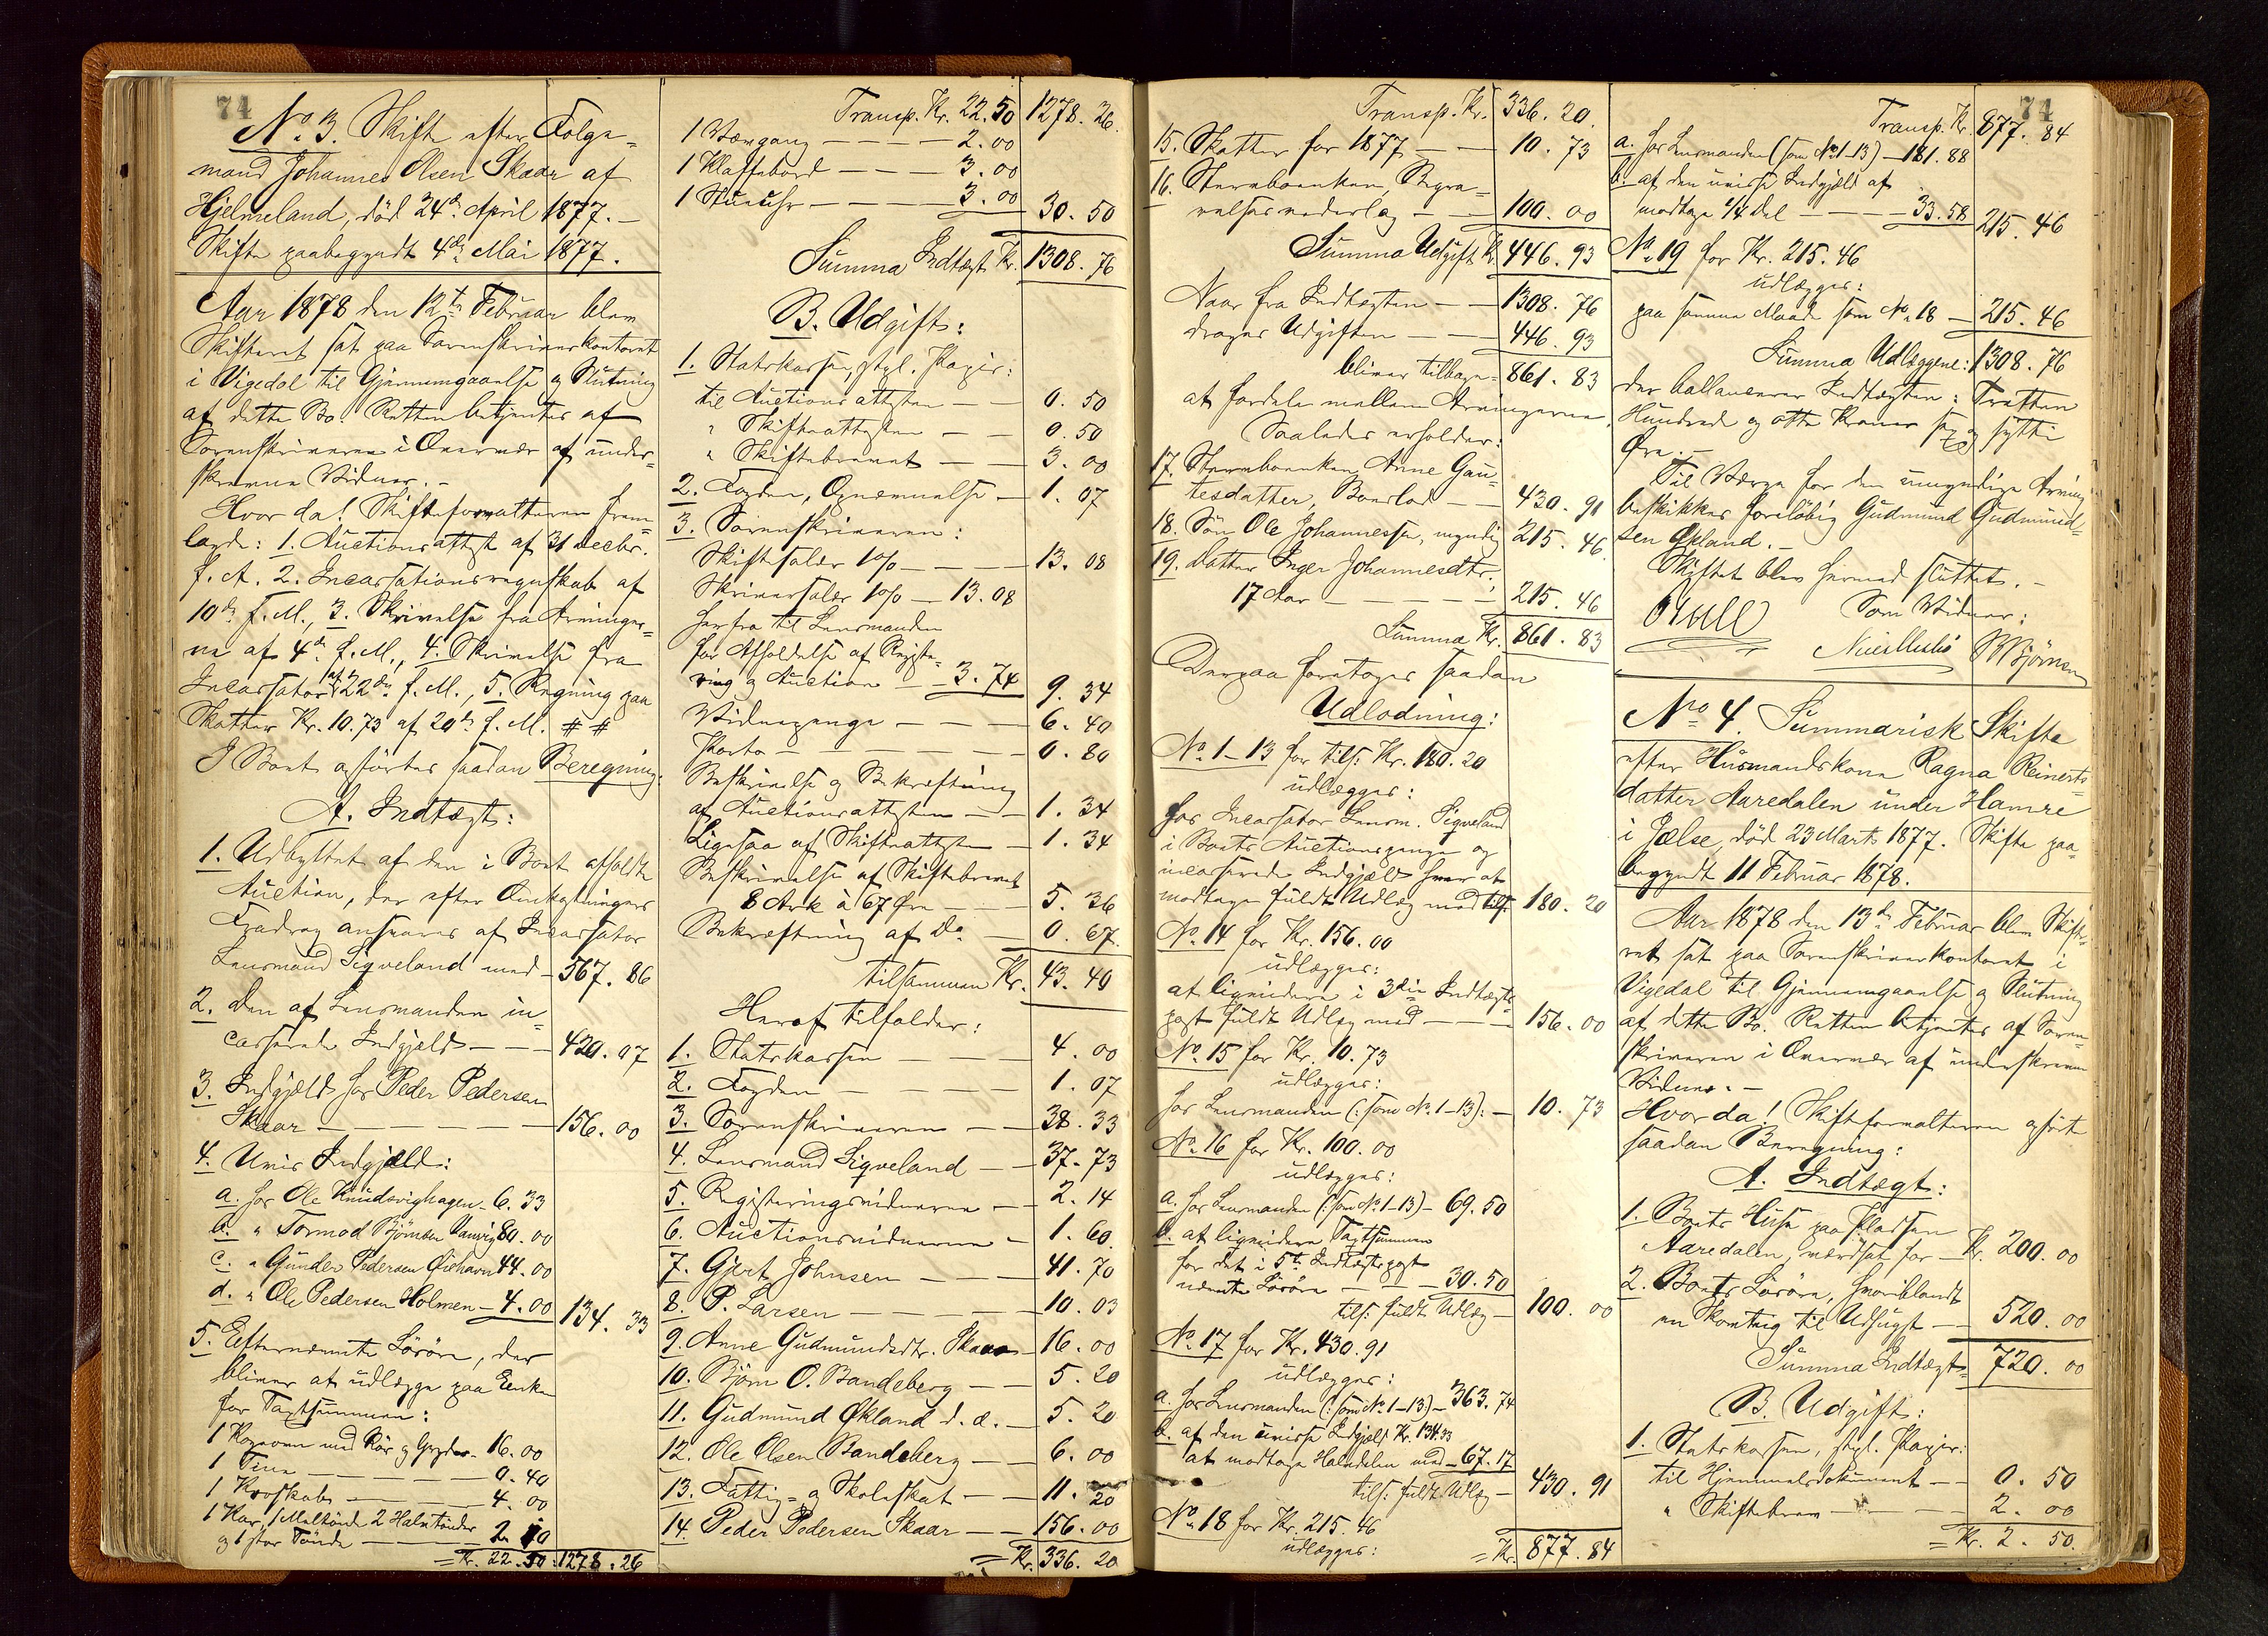 74
No 3. Skifte efter Følge=
mand Johannes Olsen Skaar af
Hjelmeland, död 24de April 1877. -
Skifte paabegyndt 4de Mai 1877.
Aar 1878 den 12te Februar blev
Skifteret sat paa Sorenskriverkontoret
i Vigedal til Gjennemgaaelse og Slutning
af dette Bo. Retten betjentes af
Sorenskriveren i Overvær af under=
skrevne Vidner. -
Hvor da! Skifteforvalteren frem=
lagde: 1. Auctionsattest af 31 Decbr.
f. A. 2. Incassationsregnskab af
10de f. M., 3. Skrivelse fra Arvinger=
ne af 4de f. M., 4. Skrivelse fra
Incassator af 22de f. M., 5. Regning paa
Skatter Kr. 10.73 af 20de f. M. # #
I Boet opførtes saadan Beregning:
A. Indtægt:
1. Udbyttet af den i Boet afholdte
Auction, der efter Omkostningers
Fradrag ansvares af Incassator
Lensmand Sigveland med - 567. 86
2. Den af Lensmanden in=
casserede Indgjæld - - - 420. 07
3. Indgjæld hos Peder Pedersen
Skaar - - - - - 156. 00
4. Uvis Indgjæld:
a. hos Ole Knudsvighagen - 6. 33
b. " Tormod Björnsen Vanvig 80. 00
c. " Gunder Pedersen Öiehavn 44. 00
d. " Ole Pedersen Holmen - 4. 00 134. 33
5. Efternævnte Lösöre, der
bliver at udlægge paa Enken
for Taxtsummen:
1 Kogeovn med Rör og Gryder - 16. 00
1 Tine - - - - 0. 40
1 Kroskab - - - - 4. 00
1 Kar, 1 Meltönde 2 Halvtönder
og 1 stor Tönde - - - 2. 10
= Kr. 22. 50. 1278. 26
Transp. Kr. 22. 50 1278. 26.
1 Vævgang - - - - 2. 00
1 Klaffebord - - - 3. 00
1 Stueuhr - - - - 3. 00 30. 50
Summa Indtægt Kr. 1308. 76
B. Udgift:
1. Statskassen, stpl. Papir:
til Auctionsattesten - - 0. 50
" Skifteattesten - - 0. 50
" Skiftebrevet - - 3. 00
2. Fogden, Opnævnelse - 1. 07
3. Sorenskriveren:
Skiftesalær 1% - - - 13. 08
Skriversalær 1% - 13. 08
herfra til Lensmanden
for Afholdelse af Registe=
ring og Auction - - 3. 74 9. 34
Vidnepenge - - - 6. 40
Porto - - - - - 0. 80
Beskrivelse og Bekræftning
af Auctionsattesten - - 1. 34
Ligesaa af Skifteattesten - 1. 34
Beskrivelse af Skiftebrevet
8 Ark à 67 Øre - - 5. 36
Bekræftning af Do. - 0. 67.
tilsammen Kr. 43. 40
Heraf tilfalder:
1. Statskassen - - - 4. 00
2. Fogden - - - 1. 07
3. Sorenskriveren - - 38. 33
4. Lensmand Sigveland - - 37. 73
5. Registeringsvidnerne - - 2. 14
6. Auctionsvidnerne - 1. 60
7. Gjert Johnsen - - - 41. 70
8. P. Larsen - - - - 10. 03
9. Anne Gudmundsdtr. Skaar - 16. 00
10. Björn O. Bandeberg - - 5. 20
11. Gudmund Økland d. æ. - 5. 20
12. Ole Olsen Bandeberg - - 6. 00
13. Fattig= og Skoleskat - - 11. 20
14. Peder Pedersen Skaar - - 156. 00
= Kr. 336. 20
Transp. Kr. 336. 20
15. Skatter for 1877 - - 10. 73
16. Stervboenken, Begra=
velsesvederlag - - 100. 00
Summa Udgift Kr. 446. 93
Naar fra Indtægten - - 1308. 76
drages Udgiften - - 446. 93
bliver tilbage - 861. 83
at fordele mellem Arvingerne.
Saaledes erholder:
17. Stervboenken Anne Gau=
tesdatter, Boeslod - - 430. 91
18. Sön Ole Johannessen, myndig 215. 46.
19. Datter Inger Johannesdtr.,
17 Aar - - - - 215. 46
Summa Kr. 861. 83
Derpaa foretoges saadan
Udlodning:
No 1-13 for tils. Kr. 180. 20
udlægges:
hos Incassator Lensm. Sigveland
i Boets Auctionspenge og
incasserede Indgjæld hver at
modtage fuldt Udlæg med tils. 180. 20
No 14 for Kr. 156. 00
udlægges:
at liqvidere i 3die Indtægts=
post fuldt Udlæg med - - - 156. 00
No 15 for Kr. 10. 73
udlægges:
hos Lensmanden (: som No 1-13): - 10. 73
No 16 for Kr. 100. 00
udlægges:
a. hos Lensmanden (: som No 1-13) - 69. 50
b. at liqvidere Taxtsummen
for det i 5te Indtægtspost
nævnte Lösöre - - - 30. 50
tils. fuldt Udlæg - 100. 00
No 17 for Kr. 430. 91
udlægges:
a. hos Lensmanden (: som No 1-13) - 363. 74
b. af den uvisse Indgjæld Kr. 134.33
at modtage Halvdelen med - 67. 17
tils. fuldt Udlæg - 430. 91
No 18 for Kr. 215. 46
udlægges: = Kr. 877. 84
74
Transp. Kr. 877. 84
a. hos Lensmanden (som No 1-13) - 181. 88
b. af den uvisse Indgjæld at
modtage 1/4 Del - - - 33. 58 215. 46
No 19 for Kr. 215. 46
udlægges:
paa samme Maade som No 18 - 215. 46
Summa Udlæggene: 1308. 76
der ballancerer Indtægten: Tretten
Hundrede og otte Kroner sex og sytti
Øre. -
Til Værge for den umyndige Arving
beskikkes foreløbig Gudmund Gudmund=
sen Økland. -
Skiftet blev hermed sluttet. -
Som Vidner:
No 4. Summarisk Skifte
efter Husmandskone Ragna Reinerts=
datter Aaredalen under Hamre
i Jelse, död 23 Marts 1877. Skifte paa=
begyndt 11 Februar 1878.
Aar 1878 den 13de Februar blev Skifte=
ret sat paa Sorenskriverkontoret i
Vigedal til Gjennemgaaelse og Slutning
af dette Bo. Retten betjentes af Soren=
skriveren i Overvær af underskrevne
Vidner. -
Hvor da! Skifteforvalteren opførte
saadan Beregning:
A. Indtægt:
1. Boets Huse paa Pladsen
Aaredalen, værdsat for - Kr. 200. 00
2. Boets Lösöre, hvoriblandt
en Skovteig til Udhugst - - 520. 00
Summa Indtægt 720. 00
B. Udgift:
1. Statskassen, stpl. Papir:
til Hjemmelsdokument - - 0. 50
" Skiftebrev - - - 2. 00
= Kr. 2. 50.